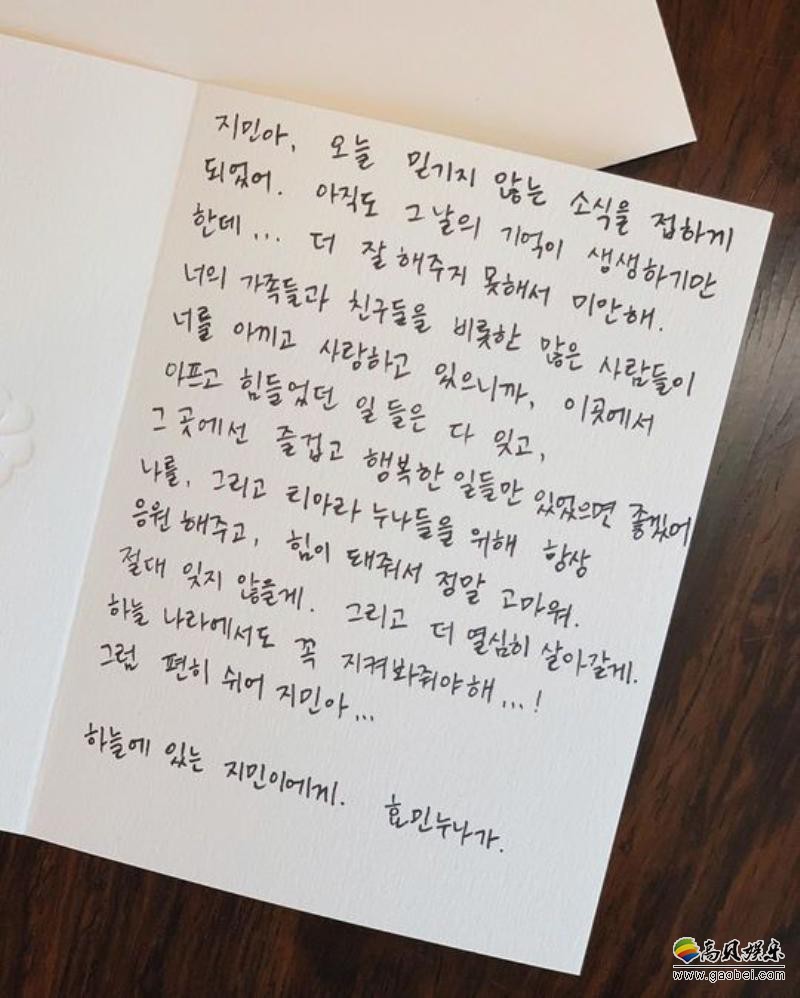 지민아, 오늘 믿기지 않는 소식을 접하게
되었어. 아직도 그날의 기억이 생생하기만
한데... 더 잘해주지 못해서 미안해.
너의 가족들과 친구들을 비롯한 많은 사람들이
너를 아끼고 사랑하고 있으니까, 이곳에서
아프고 힘들었던 일들은 다 잊고,
그 곳에선 즐겁고 행복한 일들만 있었으면 좋겠어
나를, 그리고 티아라 누나들을 위해 항상
응원해주고, 힘이 돼줘서 정말 고마워.
절대 잊지 않을게. 그리고 더 열심히 살아갈게.
하늘 나라에서도 꼭 지켜봐줘야해...!
그럼 편히 쉬어 지민아...
하늘에 있는 지민이에게. 효민누나가.
高贝娱乐
www.gaobei.com